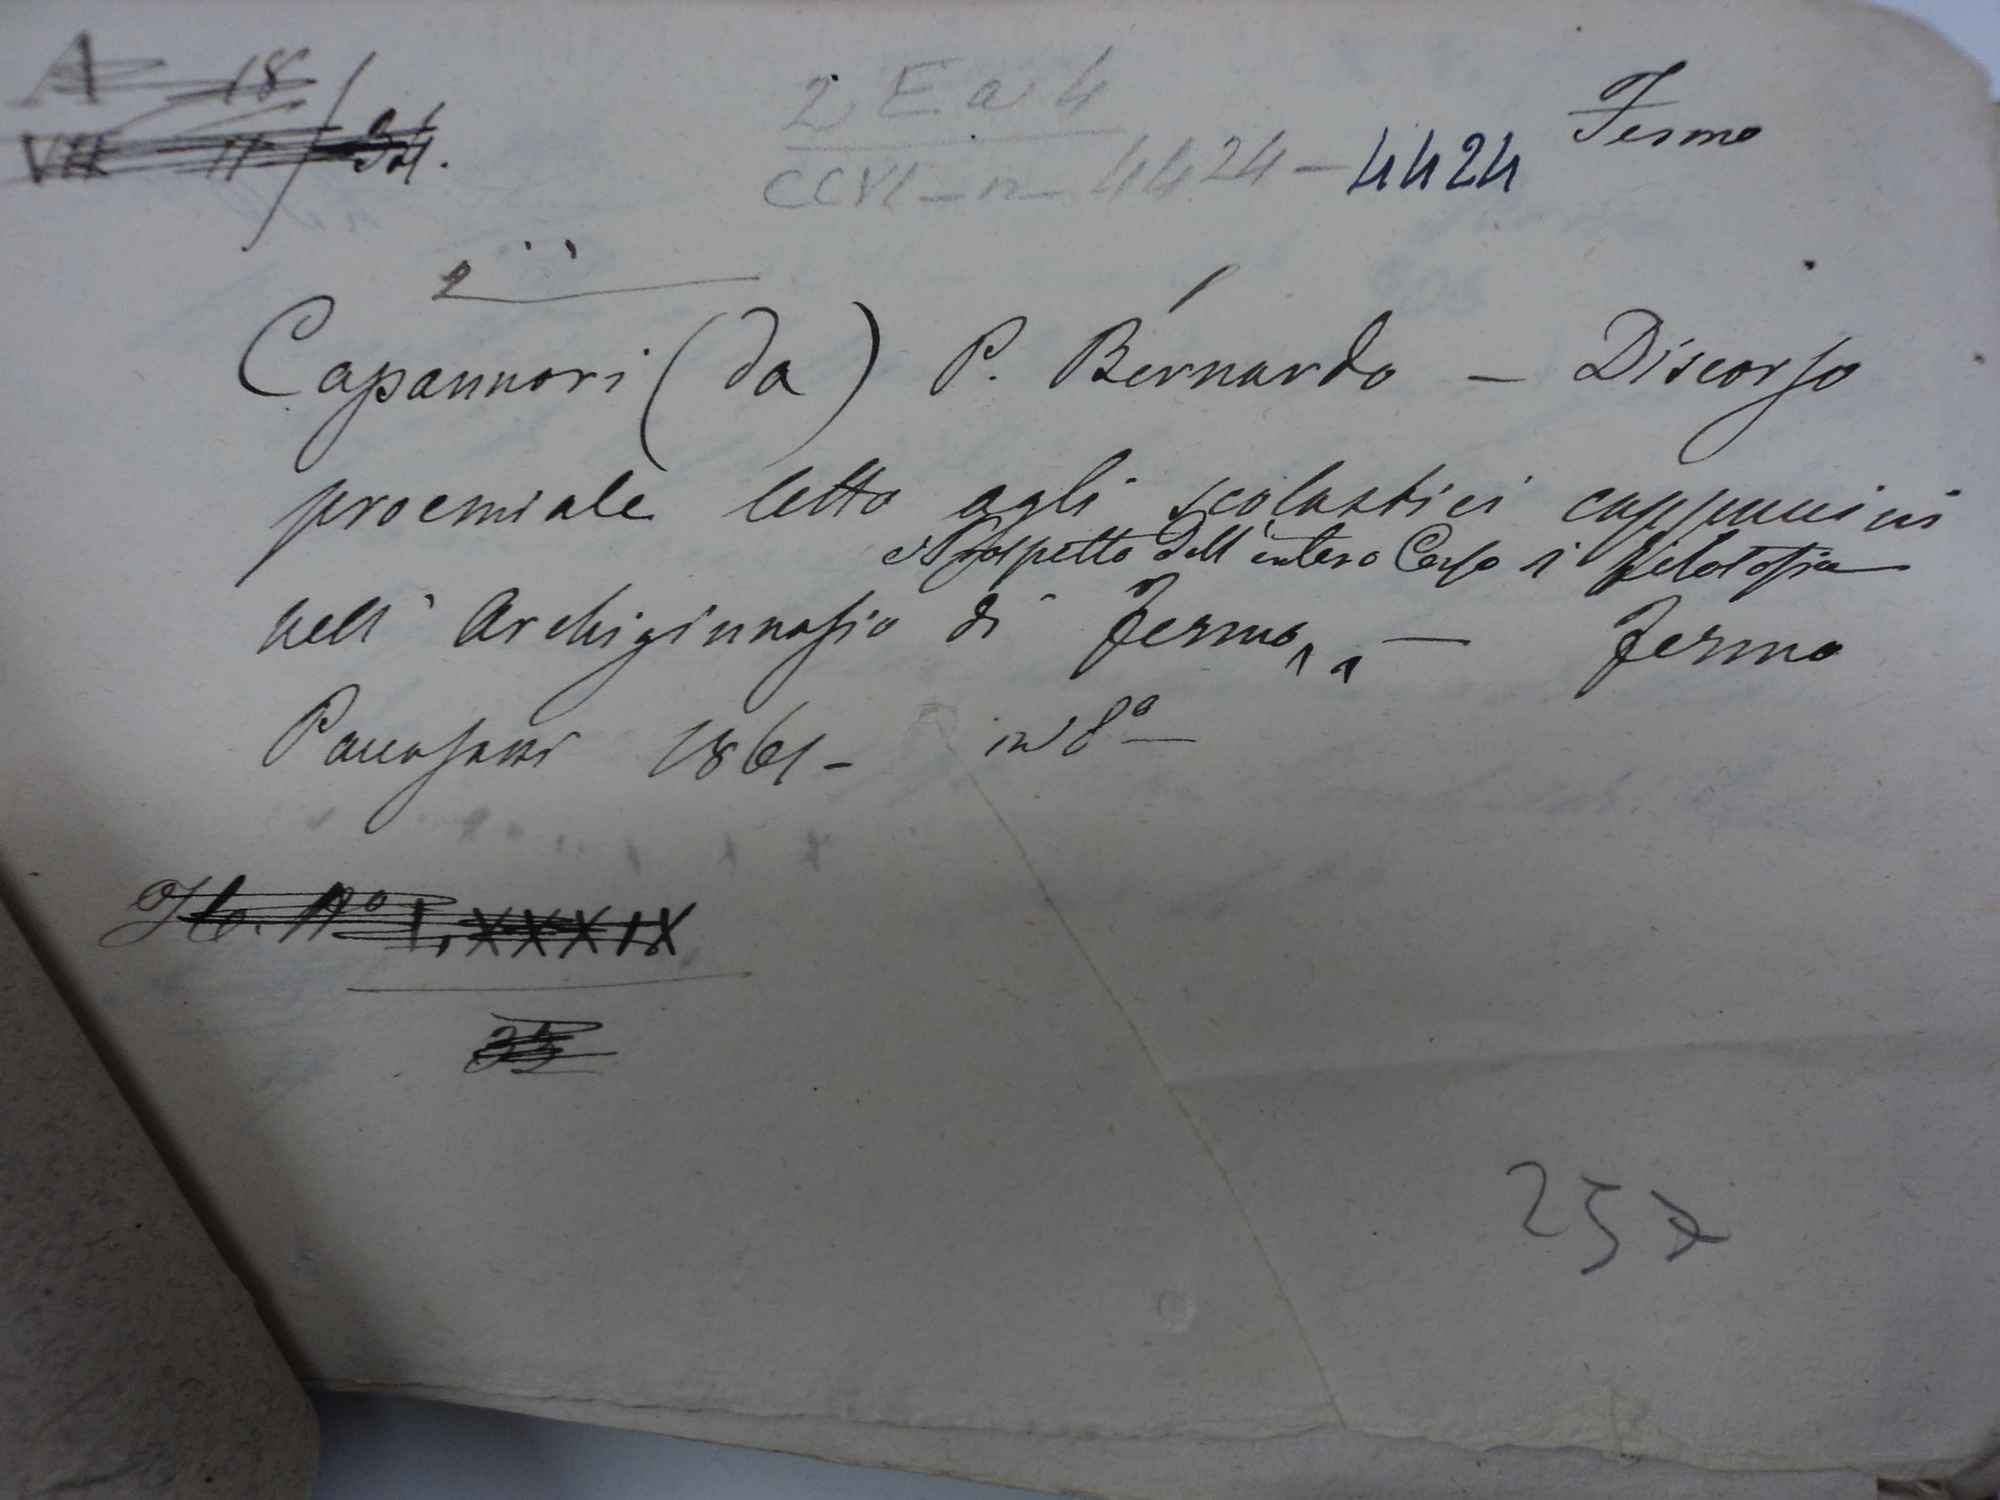 A 18
VII 11 / 34.
2 E a 4
CCVI - n - 4424 - 4424
Fermo
2
Capannori (da) P. Bernardo - Discorso
proemiale letto agli scolastici cappuccini
e Prospetto dell'intero Corso di filosofia
nell'Archiginnasio di Fermo - Fermo
Paccasassi 1861 - in 8º -
N.º LXXXIX
257